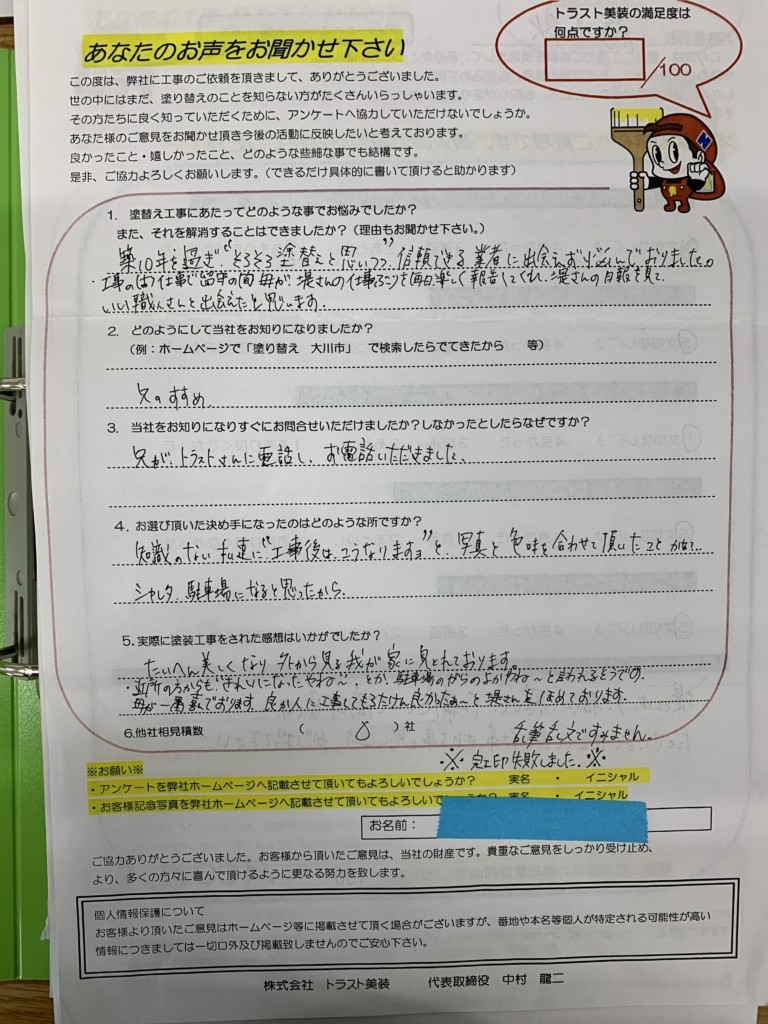 トラスト美装の満足度は
何点ですか？
/100
あなたのお声をお聞かせ下さい
この度は、弊社に工事のご依頼を頂きまして、ありがとうございました。
世の中にはまだ、塗り替えのことを知らない方がたくさんいらっしゃいます。
その方たちに良く知っていただくために、アンケートへ協力していただけないでしょうか。
あなた様のご意見をお聞かせ頂き今後の活動に反映したいと考えております。
良かったこと・嬉しかったこと、どのような些細な事でも結構です。
是非、ご協力よろしくお願いします。（できるだけ具体的に書いて頂けると助かります）
1. 塗替え工事にあたってどのような事でお悩みでしたか？
また、それを解消することはできましたか？（理由もお聞かせ下さい。）
築10年を過ぎ“そろそろ塗替えと思いつつ”信頼できる業者に出会えず悩んでおりました。
・工事の間、仕事で留守の間 母が堤さんの仕事ぶりを毎日楽しく報告してくれ、堤さんの日報を見て、
いい職人さんと出会えたと思います。
2. どのようにして当社をお知りになりましたか？
（例：ホームページで「塗り替え 大川市」 で検索したらでてきたから 等）
兄のすすめ
3. 当社をお知りになりすぐにお問合せいただけましたか？しなかったとしたらなぜですか？
兄が、トラストさんに電話し、お電話いただきました。
4. お選び頂いた決め手になったのはどのような所ですか？
知識のない私達に“工事後は、こうなりますョ”と、写真と色味を合わせて頂いたこと
シャレタ、駐車場になると思ったから。
5. 実際に塗装工事をされた感想はいかがでしたか？
たいへん美しくなり 外から見る我が家に見とれております。
・近所の方からも“きれいになったやね～”とか、駐車場のがらのよかやね～と言われるそうでの
母が一番喜んでおります。良か人に工事してもろたけん良かったぁ～と堤さんをほめております。
6. 他社相見積数 （ 0 ）社
乱筆乱文ですみません。
※ 完工印失敗しました。※
※お願い※
・アンケートを弊社ホームページへ記載させて頂いてもよろしいでしょうか？ 実名 ・ イニシャル
・お客様記念写真を弊社ホームページへ記載させて頂いてもよろしいでしょうか？ 実名 ・ イニシャル
お名前：
ご協力ありがとうございました。お客様から頂いたご意見は、当社の財産です。貴重なご意見をしっかり受け止め、
より、多くの方々に喜んで頂けるように更なる努力を致します。
個人情報保護について
お客様より頂いたご意見はホームページ等に掲載させて頂く場合がございますが、番地や本名等個人が特定される可能性が高い
情報につきましては一切口外及び掲載致しませんのでご安心下さい。
株式会社 トラスト美装 代表取締役 中村 龍二